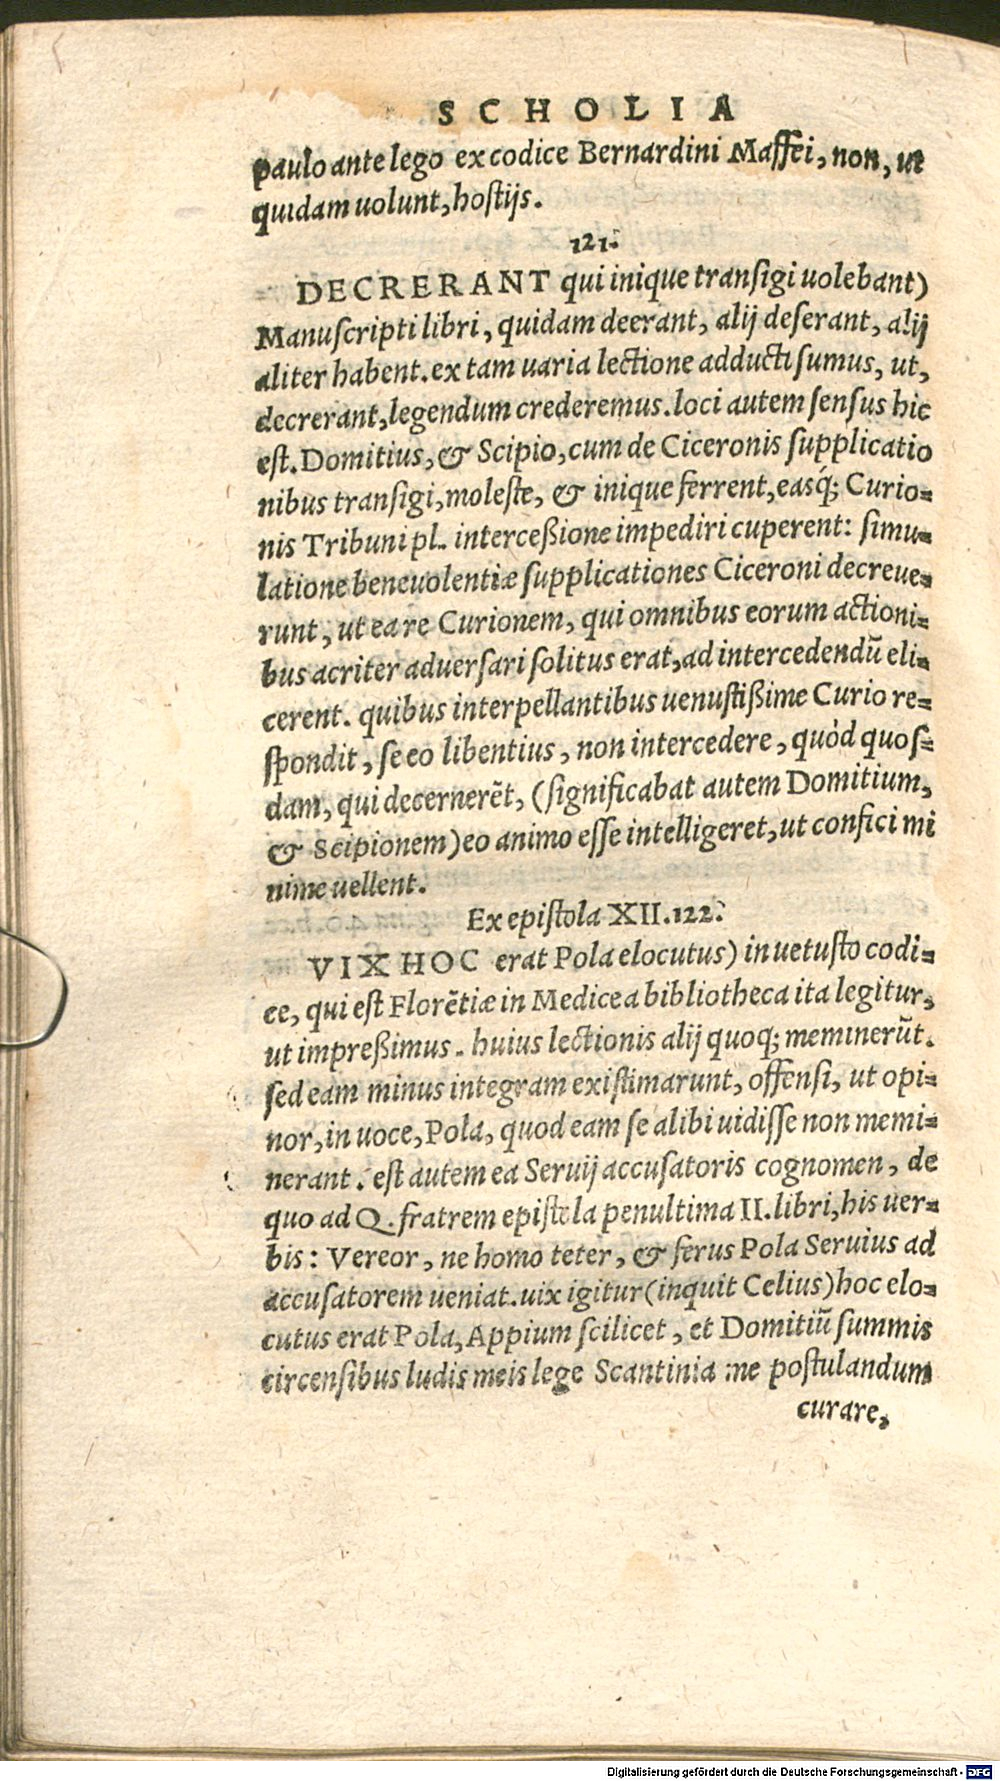 SCHOLIA
paulo ante lego ex codice Bernardini Maffei, non, ut
quidam uolunt, hostijs.
121.
DECRERANT qui inique transigi uolebant)
Manuscripti libri, quidam deerant, alij deserant, alij
aliter habent. ex tam uaria lectione adducti sumus, ut,
decrerant, legendum crederemus. loci autem sensus hic
est. Domitius, & Scipio, cum de Ciceronis supplicatio
nibus transigi, moleste, & inique ferrent, easq́; Curio=
nis Tribuni pl. interceßione impediri cuperent: simu=
latione beneuolentiæ supplicationes Ciceroni decreue=
runt, ut ea re Curionem, qui omnibus eorum actioni=
bus acriter aduersari solitus erat, ad intercedendũ eli=
cerent. quibus interpellantibus uenustißime Curio re=
spondit, se eo libentius, non intercedere, quòd quos=
dam, qui decernerẽt, (significabat autem Domitium,
& Scipionem) eo animo esse intelligeret, ut confici mi
nime uellent.
Ex epistola XII. 122.
VIX HOC erat Pola elocutus) in uetusto codi=
ce, qui est Florẽtiæ in Medicea bibliotheca ita legitur,
ut impreßimus. huius lectionis alij quoq; meminerũt.
sed eam minus integram existimarunt, offensi, ut opi=
nor, in uoce, Pola, quod eam se alibi uidisse non memi=
nerant. est autem ea Seruij accusatoris cognomen, de
quo ad Q. fratrem epistola penultima II. libri, his uer=
bis: Vereor, ne homo teter, & ferus Pola Seruius ad
accusatorem ueniat. uix igitur (inquit Celius) hoc elo=
cutus erat Pola, Appium scilicet, et Domitiũ summis
circensibus ludis meis lege Scantinia me postulandum
curare,
Digitalisierung gefördert durch die Deutsche Forschungsgemeinschaft - DFG